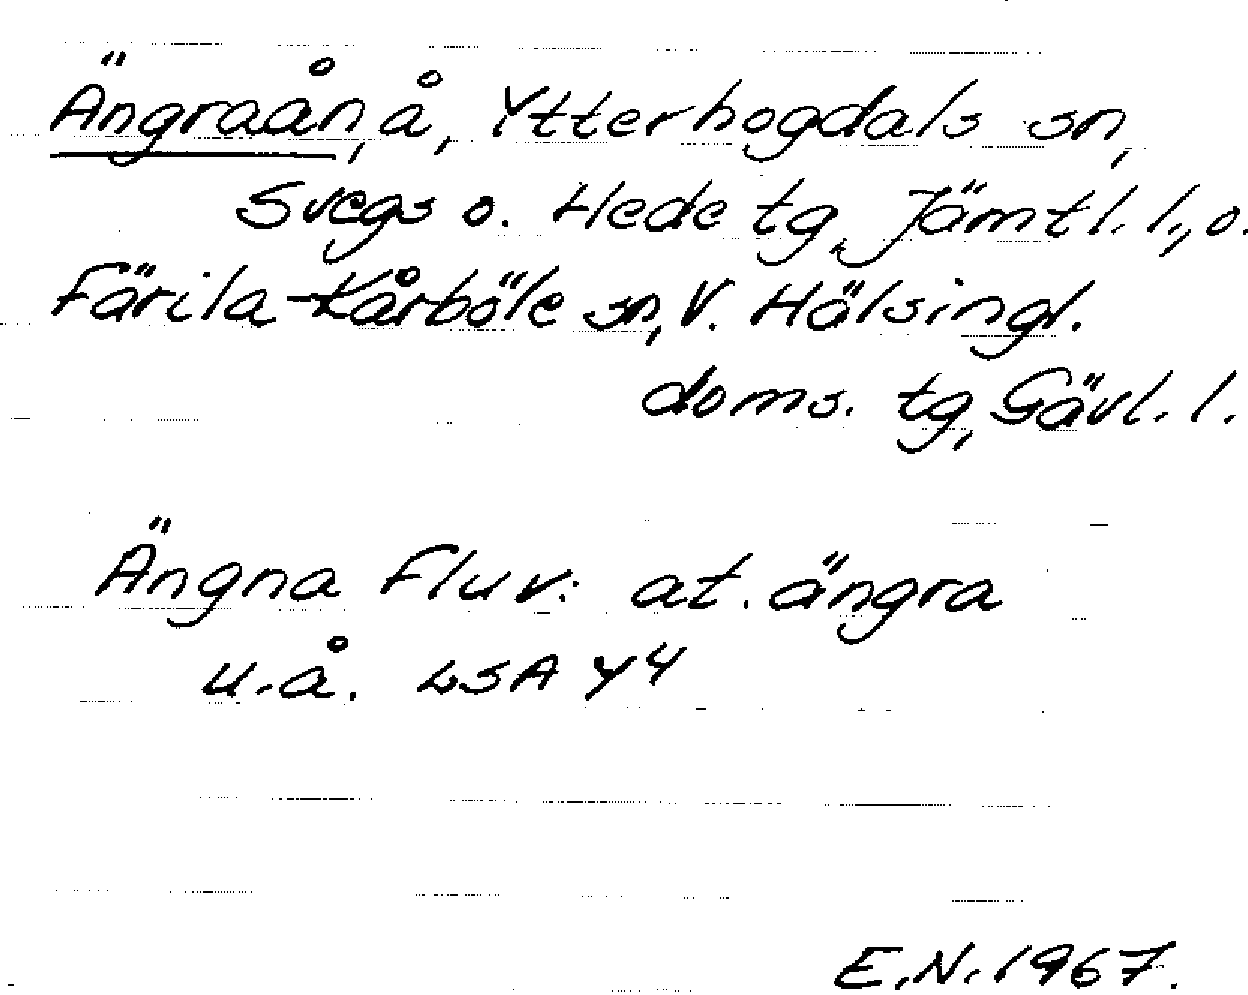 Ängraån, å, Ytterhogdals sn,
Svegs o. Hede tg, Jämtl. l., o.
Färila-Kårböle sn, V. Hälsingl.
doms. tg, Gävl. l.
Ängna Fluv: at. ängra
u.å. LSA Y4
E.N. 1967.